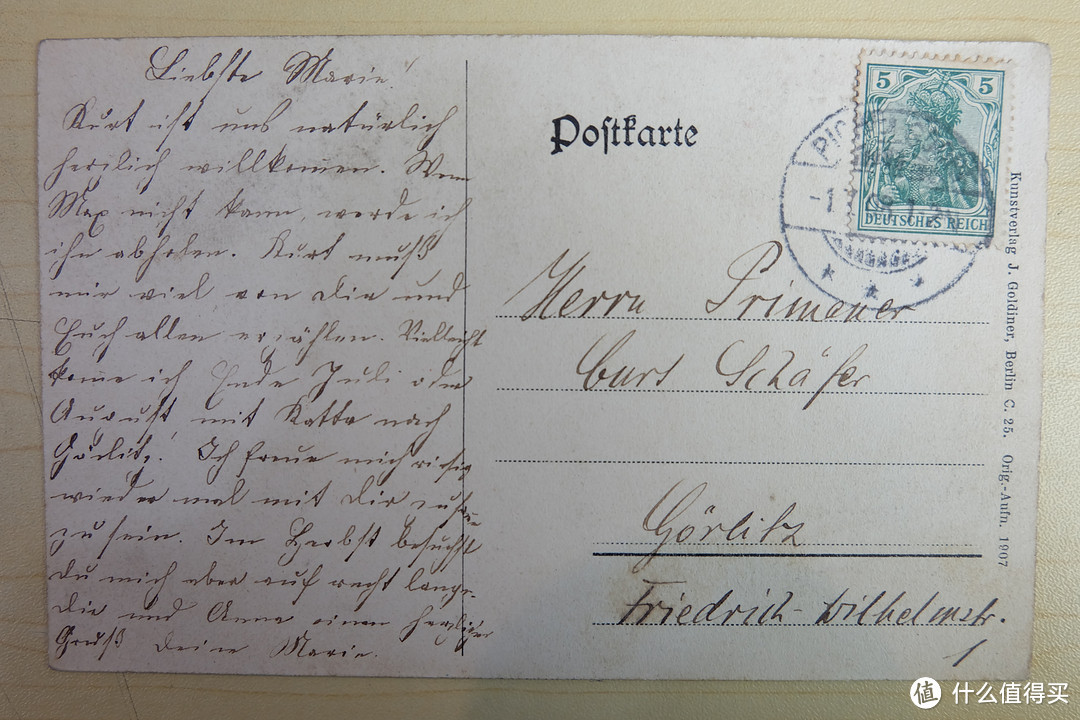 Liebste Marie!
Kurt ist uns natürlich
herzlich willkommen. Wenn
Max nicht kann, werde ich
ihn abholen. Kurt muß
mir viel von Dir und
Euch allen erzählen. Vielleicht
komme ich Ende Juli oder
August mit Käthe nach
Görlitz. Ich freue mich riesig
wieder mal mit Dir zusammen
zu sein. Im Herbst besuchst
Du mich aber auf recht lange.
Dir und Anna einen herzlichen
Gruß Deine Marie.
Postkarte
5 5
DEUTSCHES REICH
Herrn Primaner
Curt Schäfer
Görlitz
Friedrich-Wilhelmstr.
1
Kunstverlag J. Goldiner, Berlin C. 25. Orig.-Aufn. 1907
值 什么值得买